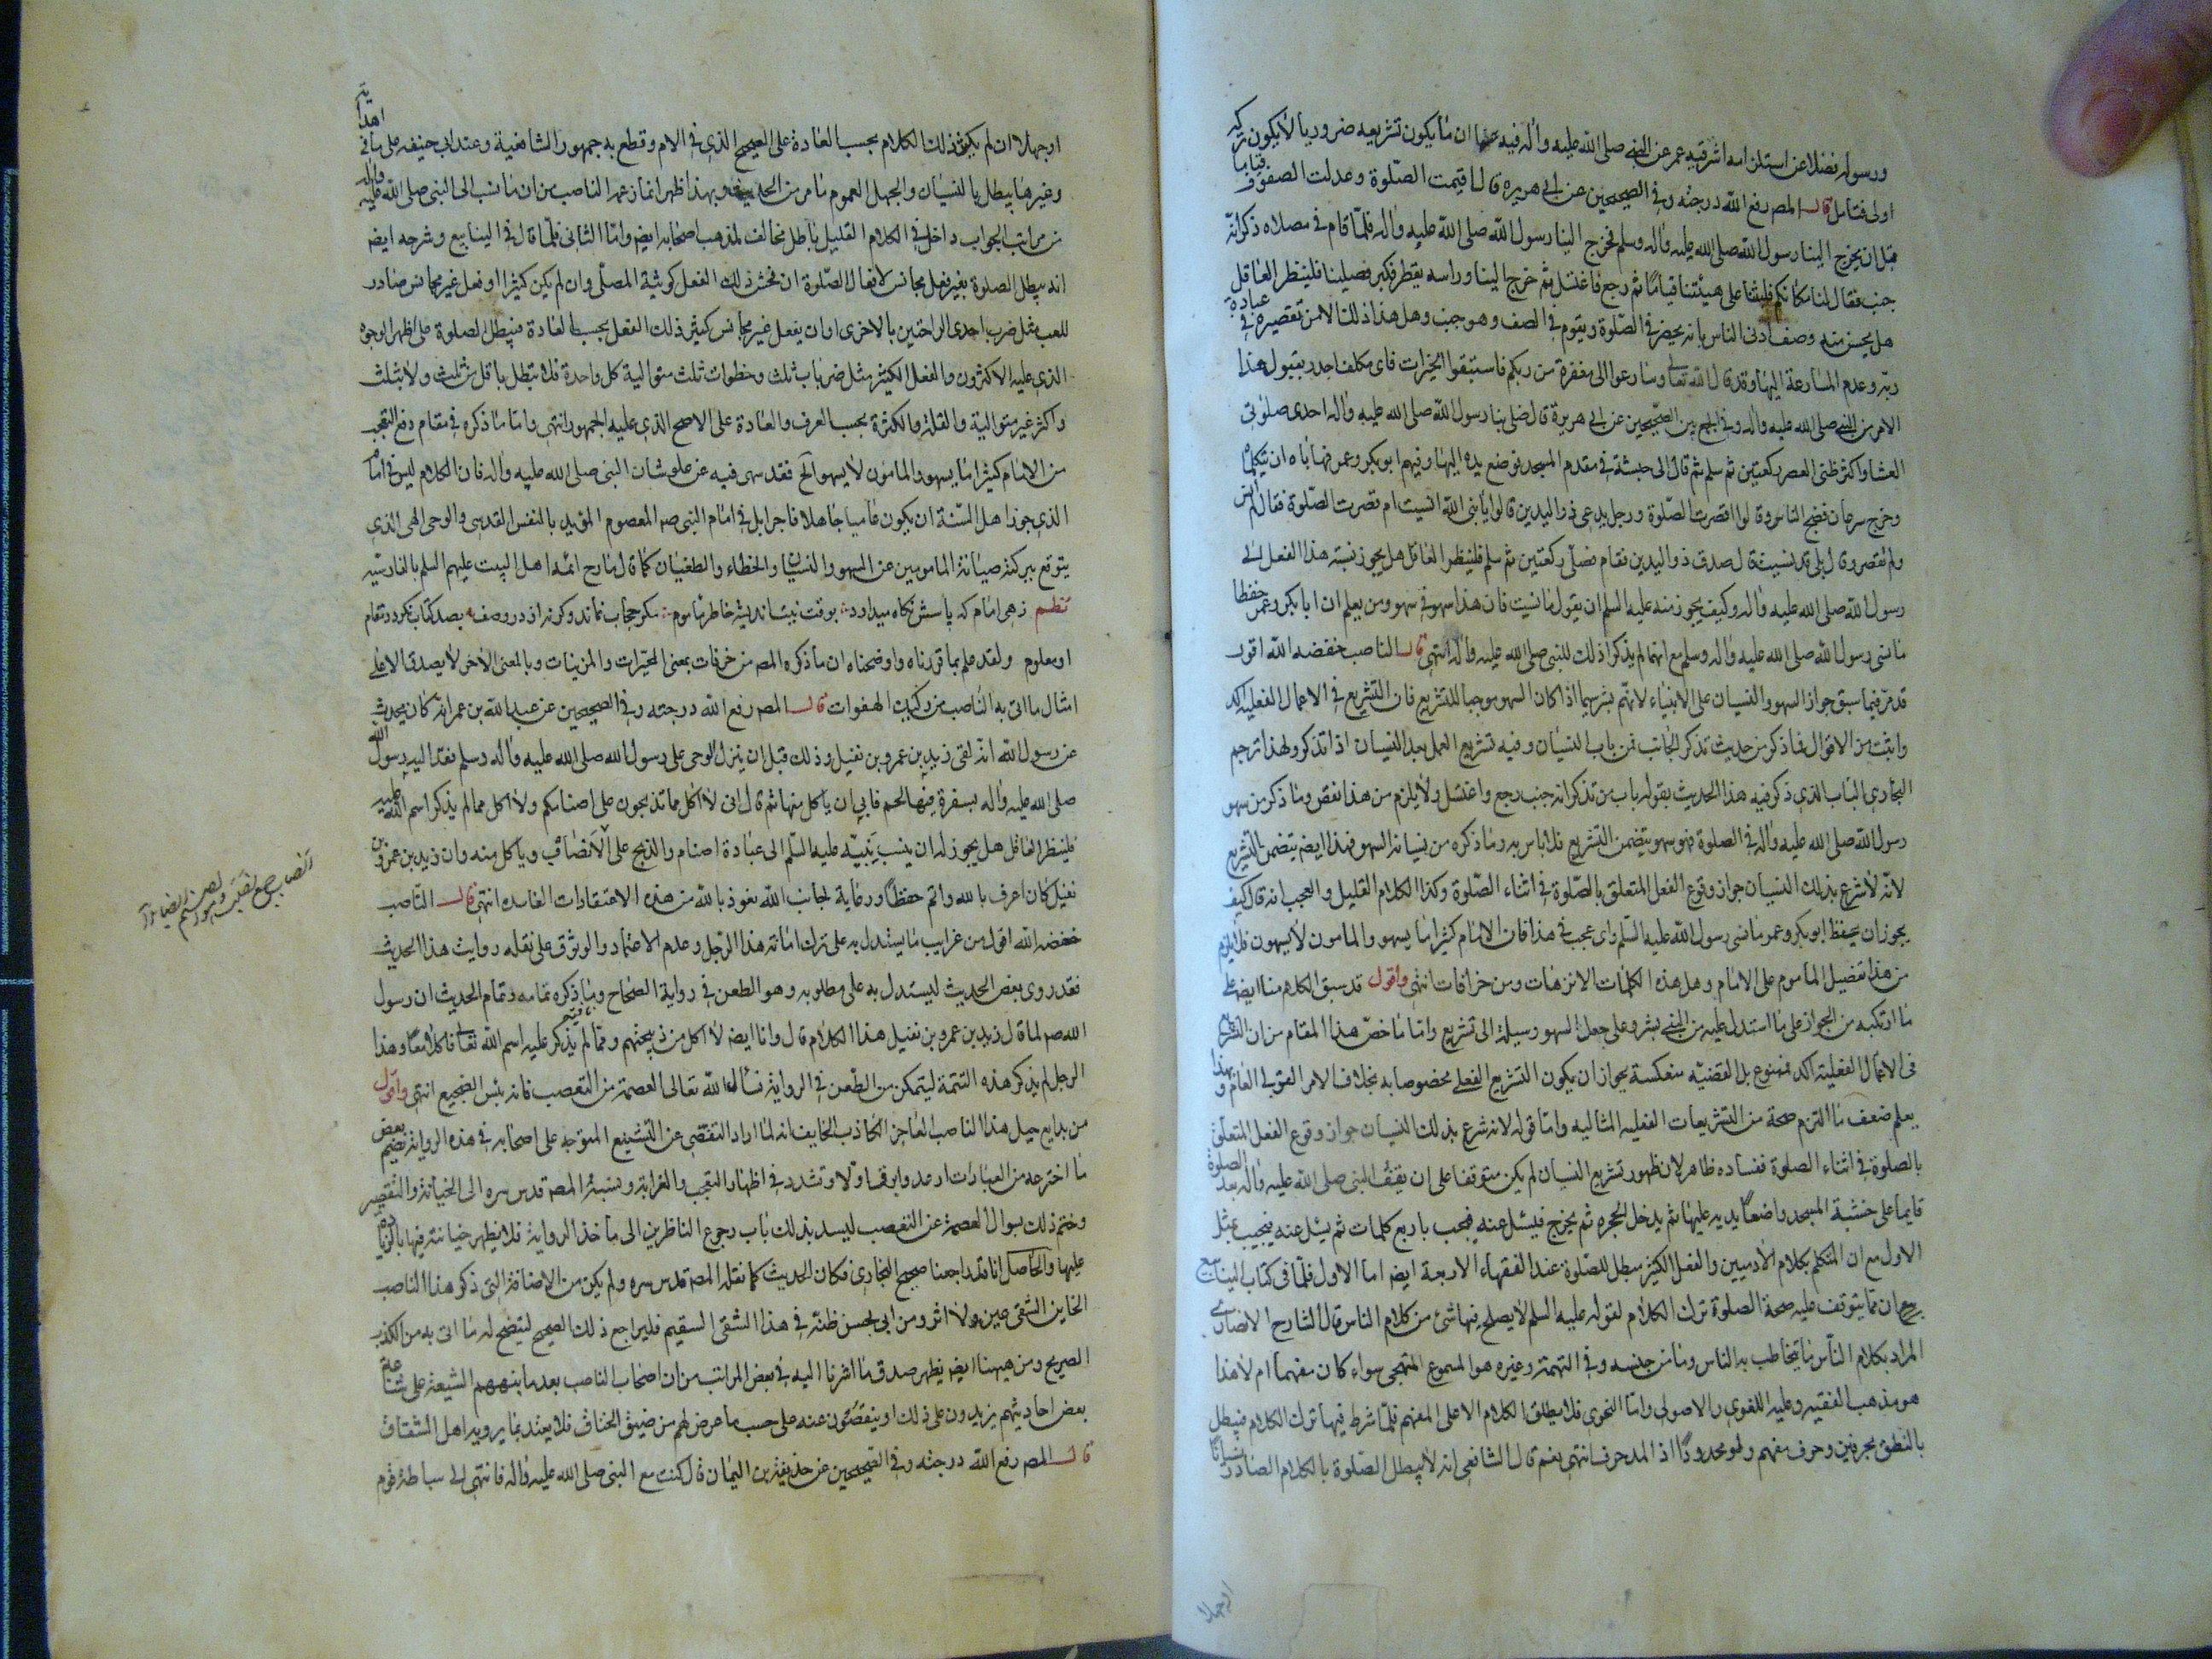 ورسوله فضلا عن استلزامه اشرفية عمر عن النبي صلى الله عليه واله فيه ان ما يكون تشريعه ضروريا لا يكون تركه
اولى فتامل قال المصر رفع الله درجته وفي الصحيحين عن ابي هريره قال اقيمت الصلوة وعدلت الصفوف قياما
قبل ان يخرج الينا رسول الله صلى الله عليه واله وسلم فخرج الينا رسول الله صلى الله عليه واله فلما قام في مصلاه ذكر انه
جنب فقال لنا مكانكم فلبثنا على هيئتنا قياما ثم رجع فاغتسل ثم خرج الينا وراسه يقطر فكبر فصلينا فلينظر العاقل
هل يحسن منه وصف ادنى الناس بانه يحضر في الصلوة ويقوم في الصف وهو جنب وهل هذا ذلك الا من تقصيره في عبادة
ربه وعدم المسارعة اليها وقد قال الله تعالى وسارعوا الى مغفرة من ربكم فاستبقوا الخيرات فاى مكلف اجدر بقبول هذا
الامر من النبي صلى الله عليه واله وفي الجمع بين الصحيحين عن ابي هريرة قال صلى بنا رسول الله صلى الله عليه واله احدى صلوتي
العشا واكثر ظني العصر ركعتين ثم سلم ثم قام الى خشبة في مقدم المسجد فوضع يده اليها وفيهم ابوبكر وعمر فهاباه ان يتكلماه
وخرج سرعان فضج الناس وقالوا اقصرت الصلوة ورجل يدعى ذو اليدين قالوا يا نبي الله انسيت ام قصرت الصلوة فقال لم انس
ولم تقصر وقال بلى قد نسيت قال صدق ذو اليدين فقام فصلى ركعتين ثم سلم فلينظر العاقل هل يجوز نسبة هذا الفعل الى
رسول الله صلى الله عليه واله وكيف يجوز منه عليه السلم ان يقول ما نسيت فان هذا سهو في سهو ومن يعلم ان ابا بكر وعمر حفظا
ما نسى رسول الله صلى الله عليه واله وسلم مع انهما لم يذكرا ذلك للنبي صلى الله عليه واله انتهى قال الناصب خفضه الله اقول
قد مر فيما سبق جواز السهو والنسيان على الانبياء لانهم بشر سيما اذا كان السهو موجبا للتشريع فان التشريع في الاعمال الفعلية اكد
واثبت من الاقوال فما ذكر من حديث تذكر الجنابة فمن باب النسيان وفيه تشريع العمل بعد النسيان اذا تذكر ولهذا ترجم
البخاري الباب الذي ذكر فيه هذا الحديث بقوله باب من تذكر انه جنب رجع واغتسل ولا يلزم من هذا نقص وما ذكر من سهو
رسول الله صلى الله عليه واله في الصلوة فهو سهو يتضمن التشريع فلا باس به وما ذكره من نسيانه السهو فهذا ايضا يتضمن التشريع
لانه لا شرع بذلك النسيان جواز وقوع الفعل المتعلق بالصلوة في اثناء الصلوة وكذا الكلام القليل والعجب انه قال كيف
يجوز ان يحفظ ابوبكر وعمر ما نسى رسول الله عليه السلم واى عجب في هذا فان الامام كثيرا ما يسهو والمامون لا يسهون فلا يلزم
من هذا تفضيل الماموم على الامام وهل هذه الكلمات الا ترهات ومن خرافات انتهى واقول قد سبق الكلام منا ايضا على
ما ارتكبه من الجواز على ما استدل عليه من النبي بشر وعلى جعل السهو وسيلة الى تشريع واما ما خص هذا المقام من ان التشريع
في الاعمال الفعلية اكد فممنوع بل القضيه منعكسة لجواز ان يكون التشريع الفعلي مخصوصا به بخلاف الامر القولي العام وبهذا
يعلم ضعف ما التزم صحة من التشريعات الفعلية المثاليه واما قوله لانه شرع بذلك النسيان جواز وقوع الفعل المتعلق
بالصلوة في اثناء الصلوة ففساده ظاهر لان ظهور تشريع النسيان لم يكن متوقفا على ان يقف النبي صلى الله عليه واله بعد الصلوة
قايما على خشبة المسجد واضعا يديه عليها ثم يدخل الحجره ثم يخرج فيسئل عنه فيجب باربع كلمات ثم يسئل عنه فيجيب بمثل
الاول مع ان التكلم بكلام الادميين والفعل الكثير مبطل للصلوة عند الفقهاء الاربعة ايضا اما الاول فلما في كتاب الينابيع
ان مما يتوقف عليه صحة الصلوة ترك الكلام لقوله عليه السلم لا يصلح فيها شئ من كلام الناس قال الشارح الانصاري
المراد بكلام الناس ما يتخاطب به الناس وما من جنسه وفي التهمة وغيره هو المسموع المتهجى سواء كان مفهما ام لا هذا
هو مذهب الفقيه وعليه اللغوي والاصولي واما النحوي فلا يطلق الكلام الا على المفهم فلما شرط فيها ترك الكلام فيبطل
بالنطق بحرفين وحرف مفهم ولو محدودا اذ المد حرف انتهى نعم قال الشافعي انه لا يبطل الصلوة بالكلام الصادر نسيانا
اوجهلا
اوجهلا ان لم يكثر ذلك الكلام بحسب العادة على الصحيح الذي في الام وقطع به جمهور الشافعية وعند ابي حنيفه على ما في الهداية
وغيرها يبطل بالنسيان والجهل العموم ما مر من الحديث وبهذا ظهر انما زعمه الناصب من ان ما نسب الى النبي صلى الله عليه واله
من مراتب الجواب داخل في الكلام القليل باطل مخالف لمذهب اصحابه ايضا واما الثاني فلما قال في الينابيع وشرحه ايضا
انه يبطل الصلوة بغير فعل مجانس لافعال الصلوة ان فحش ذلك الفعل كوثبة المصلى وان لم يكن كثيرا او فعل غير مجانس صادر
للعب مثل ضرب احدى الراحتين بالاخرى او ان يفعل غير مجانس كثير ذلك الفعل بحسب العادة فيبطل الصلوة على اظهر الوجوه
الذي عليه الاكثرون والفعل الكثير مثل ضربات ثلث وخطوات ثلث متوالية كل واحدة فلا تبطل باقل من ثلث ولا بثلث
واكثر غير متوالية والقلة والكثرة بحسب العرف والعادة على الاصح الذي عليه الجمهور انتهى واما ما ذكره في مقام دفع التعجب
من الامام كثيرا ما يسهو والمامون لا يسهو الخ فقد سهى فيه عن علو شان النبي صلى الله عليه واله فان الكلام ليس في امام
الذي جوز اهل السنة ان يكون عاميا جاهلا فاجرا بل في امام النبي صم المعصوم المؤيد بالنفس القدسي والوحي الهي الذي
يتوقع ببركته صيانة المامومين عن السهو والنسيان والخطاء والطغيان كما قال مارح ائمة اهل البيت عليهم السلم بالفارسيه
نظم زهى امام كه پاسش نكاه ميدارد بوقت نيت انديشه خاطر ماموم مكر حجاب نماند وكرنه از در وصف بصد كتاب نكردد مقام
او معلوم ولقد علم بما قررناه واوضحناه ان ما ذكره المصر من خرفات بمعنى المحيرات والمزينات وبالمعنى الاخر لا يصدق الا على
امثال ما اتى به الناصب من ركيك الهفوات قال المصر رفع الله درجته وفي الصحيحين عن عبد الله بن عمر انه كان يحدث
عن رسول الله انه لقى زيد بن عمرو بن نفيل وذلك قبل ان ينزل الوحى على رسول الله صلى الله عليه واله وسلم فقدم اليه رسول الله
صلى الله عليه واله بسفرة فيها لحم فابى ان ياكل منها ثم قال انى لا اكل مما تذبحون على اصنامكم ولا اكل مما لم يذكر اسم الله عليه
فلينظر العاقل هل يجوز له ان ينسب نبيه عليه السلم الى عبادة اصنام والذبح على الانصاب وياكل منه وان زيد بن عمرو بن
نفيل كان اعرف بالله واتم حفظا ورعاية لجانب الله نعوذ بالله من هذه الاعتقادات الفاسده انتهى قال الناصب
خفضه الله اقول من غرايب ما يستدل به على ترك امانة هذا الرجل وعدم الاعتماد والوثوق على نقله رواية هذا الحديث
فقد روى بعض الحديث ليستدل به على مطلوبه وهو الطعن في رواية الصحاح وما ذكره تمامه وتمام الحديث ان رسول
الله صم لما قال زيد بن عمرو بن نفيل هذا الكلام قال وانا ايضا لا اكل من ذبيحتهم ومما لم يذكر عليه اسم الله تعالى فاكلا معا وهذا
الرجل لم يذكر هذه التتمة ليتمكن من الطعن في الرواية نسال الله تعالى العصمة من التعصب فانه بئس الضجيع انتهى واقول
من بدايع حيل هذا الناصب العاجز الكاذب الخايف انه لما اراد التفصى عن التشنيع المتوجه على اصحابه في هذه الرواية بضم بعض
ما اخترعه من العبارات ارعد وابرق اولا وتشدد في اظهار التعجب والغرابة ونسبة المصر قدس سره الى الخيانة والتقصير
وختم ذلك بسوال العصمة عن التعصب ليسد بذلك باب رجوع الناظرين الى ماخذ الرواية فلا يظهر خيانته فيها بالزيادة
عليها والحاصل انا قد راجعنا صحيح البخاري فكان الحديث كما نقله المصر قدس سره ولم يكن من الاضافة التي ذكر هذا الناصب
الخاين الشقى عين ولا اثر ومن ابى لحسن ظنه في هذا الشقى السقيم فليراجع ذلك الصحيح ليتضح له ما اتى به من الكذب
الصريح ومن هيهنا ايضا يظهر صدق ما اشرنا اليه في بعض المراتب من ان اصحاب الناصب بعد ما ينبههم الشيعة على شناعة
بعض احاديثهم يزيدون على ذلك او ينقصون عنه على حسب ما عرض لهم من ضيق الخناق فلا يعتد بما يرويه اهل الشقاق
قال المصر رفع الله درجته وفي الصحيحين عن حذيفة بن اليمان قال كنت مع النبي صلى الله عليه واله فانتهى الى سباطة قوم